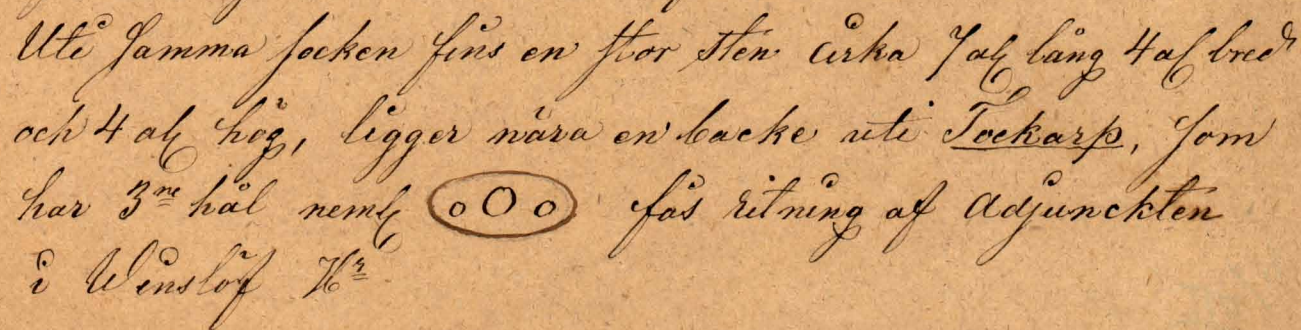 Uti samma socken fins en stor sten cirka 7 al lång 4 al bred
och 4 al hög, ligger nära en backe uti Tockarp, som
har 3ne hål neml oOo fås ritning af Adjunckten
i Winslöf Hr